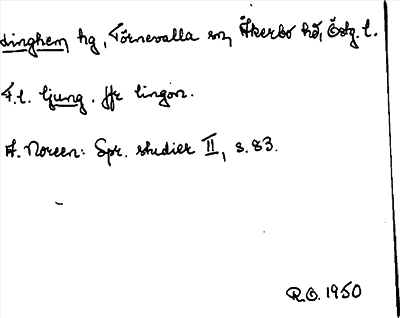 Linghem, hg, Törnevalla sn, Åkerbo hd, Östg. l.
F.l. ljung. jfr lingon.
A. Noreen: Spr. studier II, s. 83.
R.O. 1950